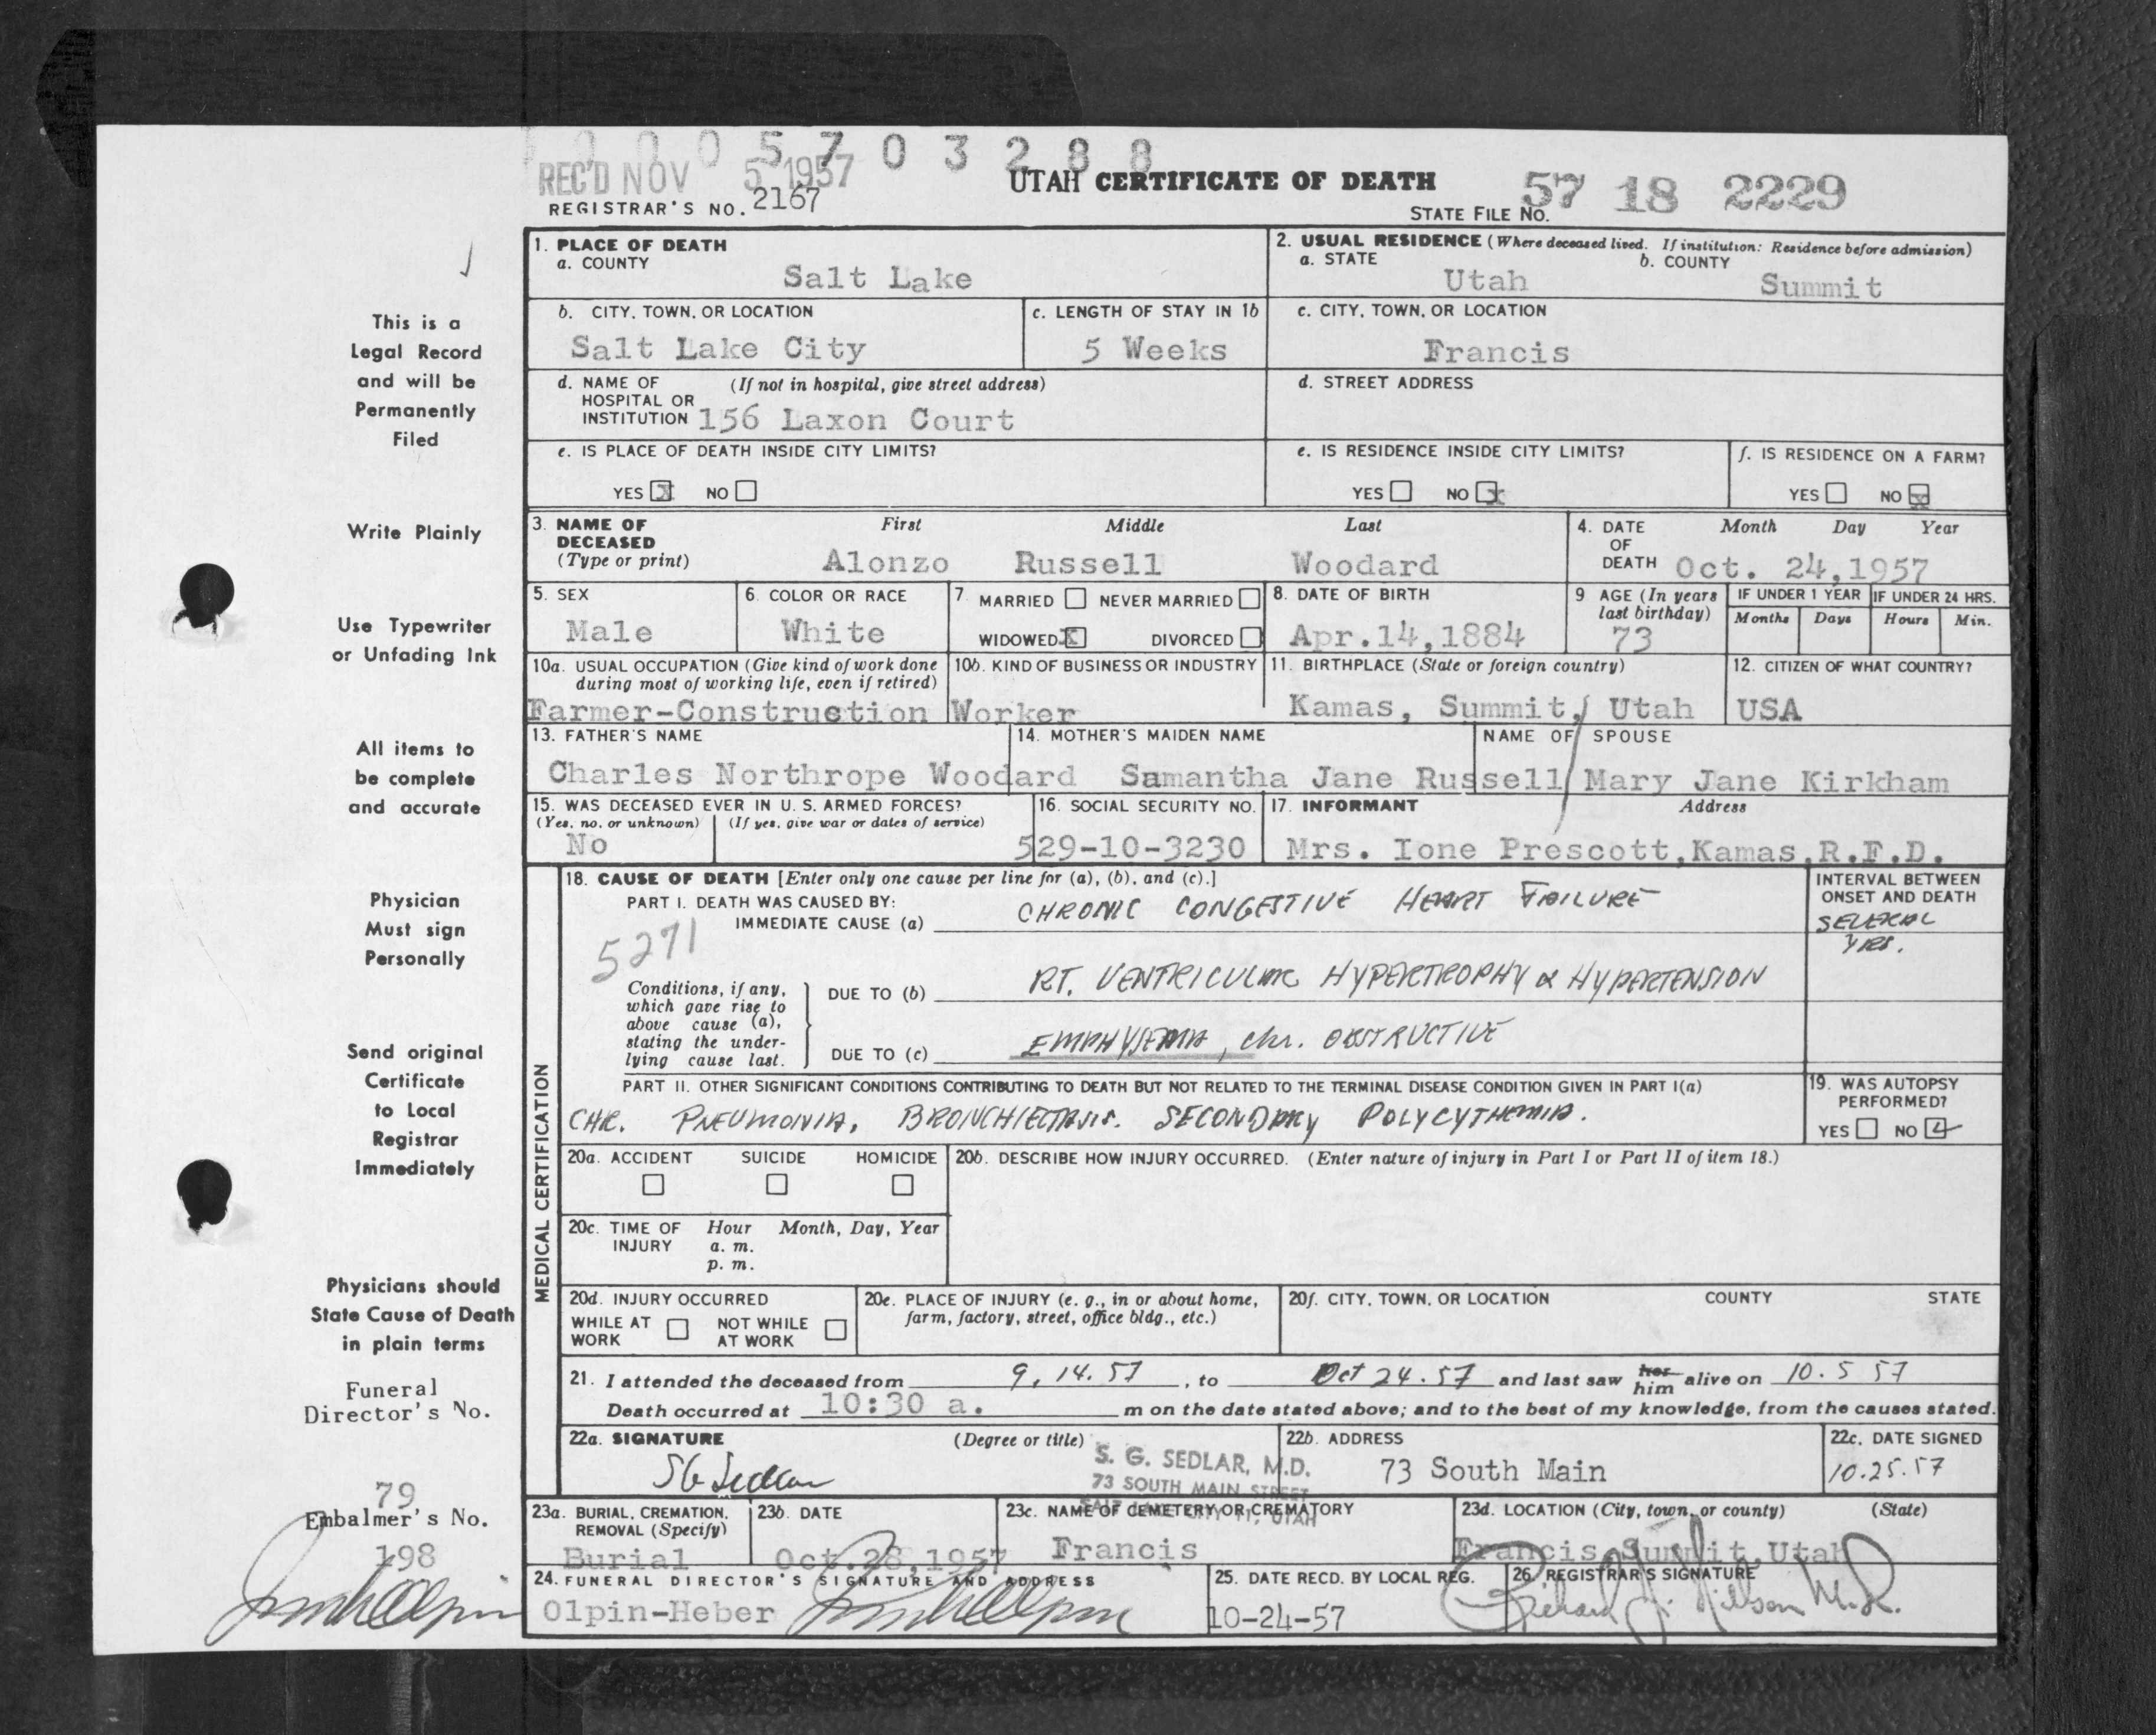 0005703288
REC'D NOV 5 1957
UTAH CERTIFICATE OF DEATH
REGISTRAR'S NO. 2167
STATE FILE NO. 57 18 2229
This is a
Legal Record
and will be
Permanently
Filed
Write Plainly
Use Typewriter
or Unfading Ink
All items to
be complete
and accurate
Physician
Must sign
Personally
Send original
Certificate
to Local
Registrar
Immediately
Physicians should
State Cause of Death
in plain terms
Funeral
Director's No.
79
Embalmer's No.
198
1. PLACE OF DEATH
a. COUNTY
Salt Lake
2. USUAL RESIDENCE (Where deceased lived. If institution: Residence before admission)
a. STATE b. COUNTY
Utah Summit
b. CITY, TOWN, OR LOCATION
Salt Lake City
c. LENGTH OF STAY IN 1b
5 Weeks
c. CITY, TOWN, OR LOCATION
Francis
d. NAME OF (If not in hospital, give street address)
HOSPITAL OR
INSTITUTION 156 Laxon Court
d. STREET ADDRESS
e. IS PLACE OF DEATH INSIDE CITY LIMITS?
YES x NO
e. IS RESIDENCE INSIDE CITY LIMITS?
YES NO x
f. IS RESIDENCE ON A FARM?
YES NO x
3. NAME OF First Middle Last
DECEASED
(Type or print) Alonzo Russell Woodard
4. DATE Month Day Year
OF
DEATH Oct. 24,1957
5. SEX
Male
6. COLOR OR RACE
White
7. MARRIED NEVER MARRIED
WIDOWED X DIVORCED
8. DATE OF BIRTH
Apr.14,1884
9 AGE (In years
last birthday)
73
IF UNDER 1 YEAR IF UNDER 24 HRS.
Months Days Hours Min.
10a. USUAL OCCUPATION (Give kind of work done
during most of working life, even if retired)
10b. KIND OF BUSINESS OR INDUSTRY
Farmer-Construction Worker
11. BIRTHPLACE (State or foreign country)
Kamas, Summit, Utah
12. CITIZEN OF WHAT COUNTRY?
USA
13. FATHER'S NAME
Charles Northrope Woodard
14. MOTHER'S MAIDEN NAME
Samantha Jane Russell
NAME OF SPOUSE
Mary Jane Kirkham
15. WAS DECEASED EVER IN U. S. ARMED FORCES?
(Yes, no, or unknown) (If yes, give war or dates of service)
No
16. SOCIAL SECURITY NO.
529-10-3230
17. INFORMANT Address
Mrs. Ione Prescott,Kamas,R.F.D.
MEDICAL CERTIFICATION
18. CAUSE OF DEATH [Enter only one cause per line for (a), (b), and (c).]
PART I. DEATH WAS CAUSED BY:
IMMEDIATE CAUSE (a) CHRONIC CONGESTIVE HEART FAILURE
INTERVAL BETWEEN
ONSET AND DEATH
SEVERAL
YRS.
5271
Conditions, if any,
which gave rise to
above cause (a),
stating the under-
lying cause last.
DUE TO (b) RT. VENTRICULAR HYPERTROPHY & HYPERTENSION
DUE TO (c) EMPHYSEMA, chr. OBSTRUCTIVE
PART II. OTHER SIGNIFICANT CONDITIONS CONTRIBUTING TO DEATH BUT NOT RELATED TO THE TERMINAL DISEASE CONDITION GIVEN IN PART I(a)
CHR. PNEUMONIA, BRONCHIECTASIS. SECONDARY POLYCYTHEMIA.
19. WAS AUTOPSY
PERFORMED?
YES NO
20a. ACCIDENT SUICIDE HOMICIDE
20b. DESCRIBE HOW INJURY OCCURRED. (Enter nature of injury in Part I or Part II of item 18.)
20c. TIME OF Hour Month, Day, Year
INJURY a. m.
p. m.
20d. INJURY OCCURRED
WHILE AT NOT WHILE
WORK AT WORK
20e. PLACE OF INJURY (e. g., in or about home,
farm, factory, street, office bldg., etc.)
20f. CITY, TOWN, OR LOCATION COUNTY STATE
21. I attended the deceased from 9.14.57, to Oct 24.57 and last saw her him alive on 10.5 57
Death occurred at 10:30 a. m on the date stated above; and to the best of my knowledge, from the causes stated.
22a. SIGNATURE (Degree or title)
S G Sedlar
S. G. SEDLAR, M.D.
73 SOUTH MAIN STREET
SALT LAKE CITY 11, UTAH
22b. ADDRESS
73 South Main
22c. DATE SIGNED
10.25.57
23a. BURIAL, CREMATION,
REMOVAL (Specify)
Burial
23b. DATE
Oct.28,1957
23c. NAME OF CEMETERY OR CREMATORY
Francis
23d. LOCATION (City, town, or county) (State)
Francis, Summit, Utah
24. FUNERAL DIRECTOR'S SIGNATURE AND ADDRESS
Olpin-Heber
25. DATE RECD. BY LOCAL REG.
10-24-57
26. REGISTRAR'S SIGNATURE